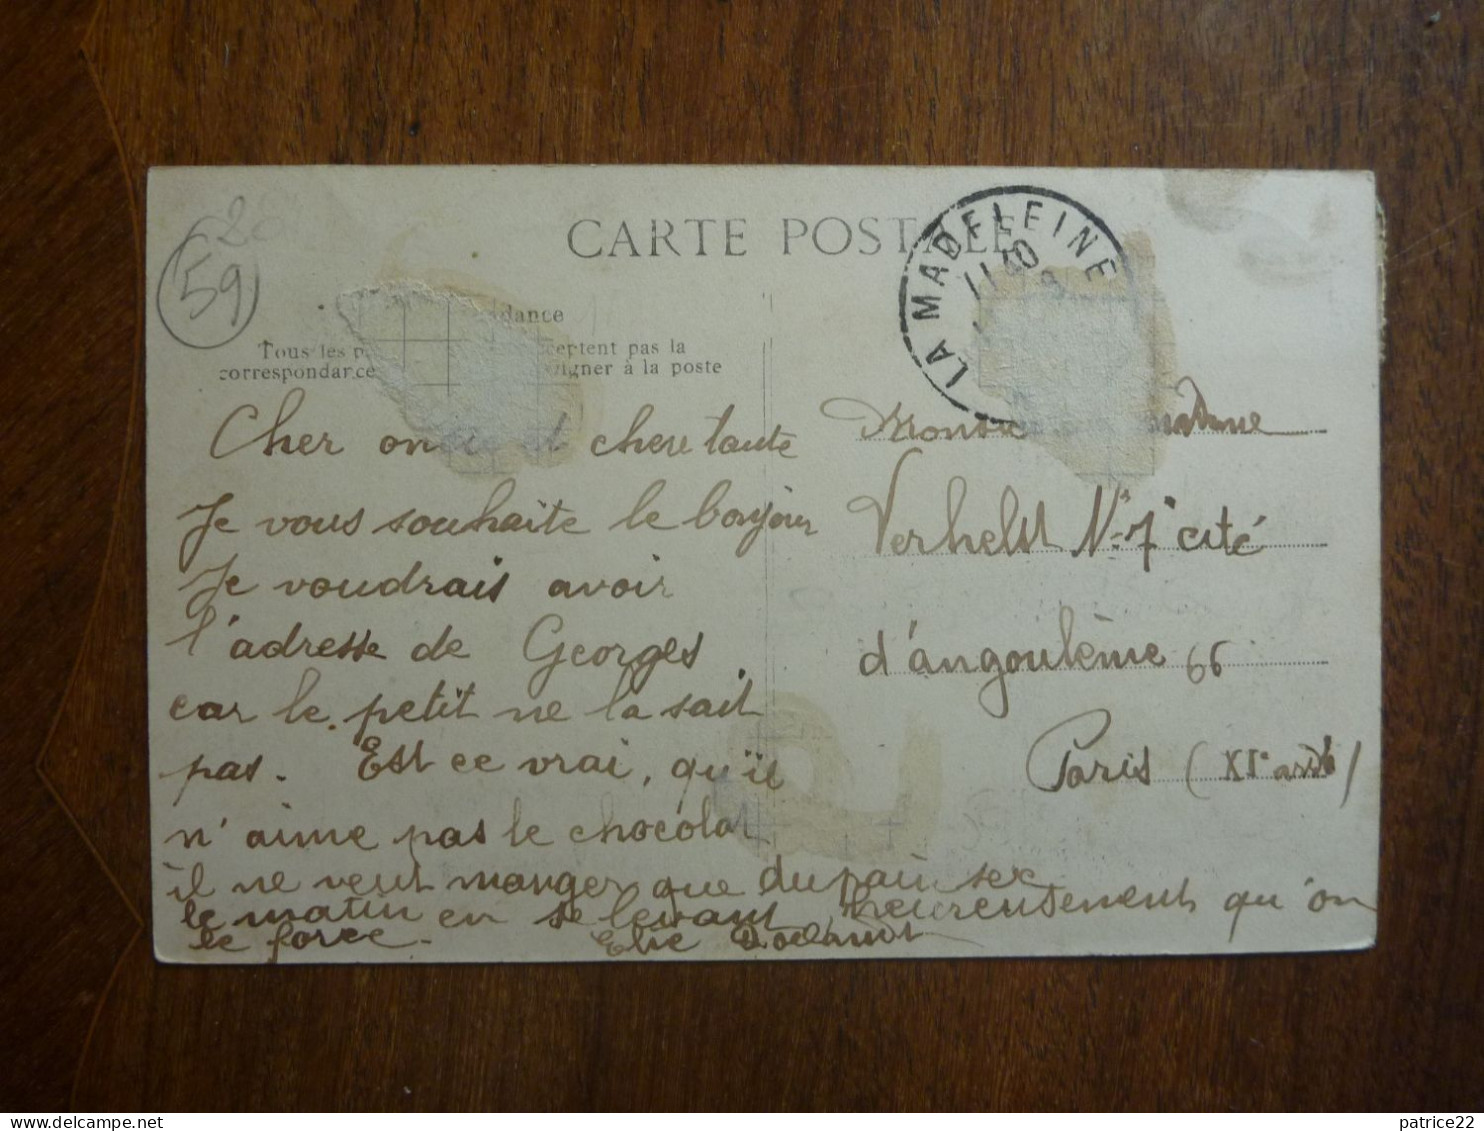 CARTE POSTALE
LA MADELEINE
59
dance
Tous les p ceptent pas la
correspondance igner à la poste
Cher on et chere tante
Je vous souhaite le bonjour
Je voudrais avoir
l'adresse de Georges
car le petit ne la sait
pas. Est ce vrai, qu'il
n'aime pas le chocolat
il ne veut manger que du pain sec
le matin en se levant heureusement qu'on
le force.
Elie
Madame
Verhelst N° 7 cité
d'angoulème 66
Paris (XIe arrdt)
patrice22